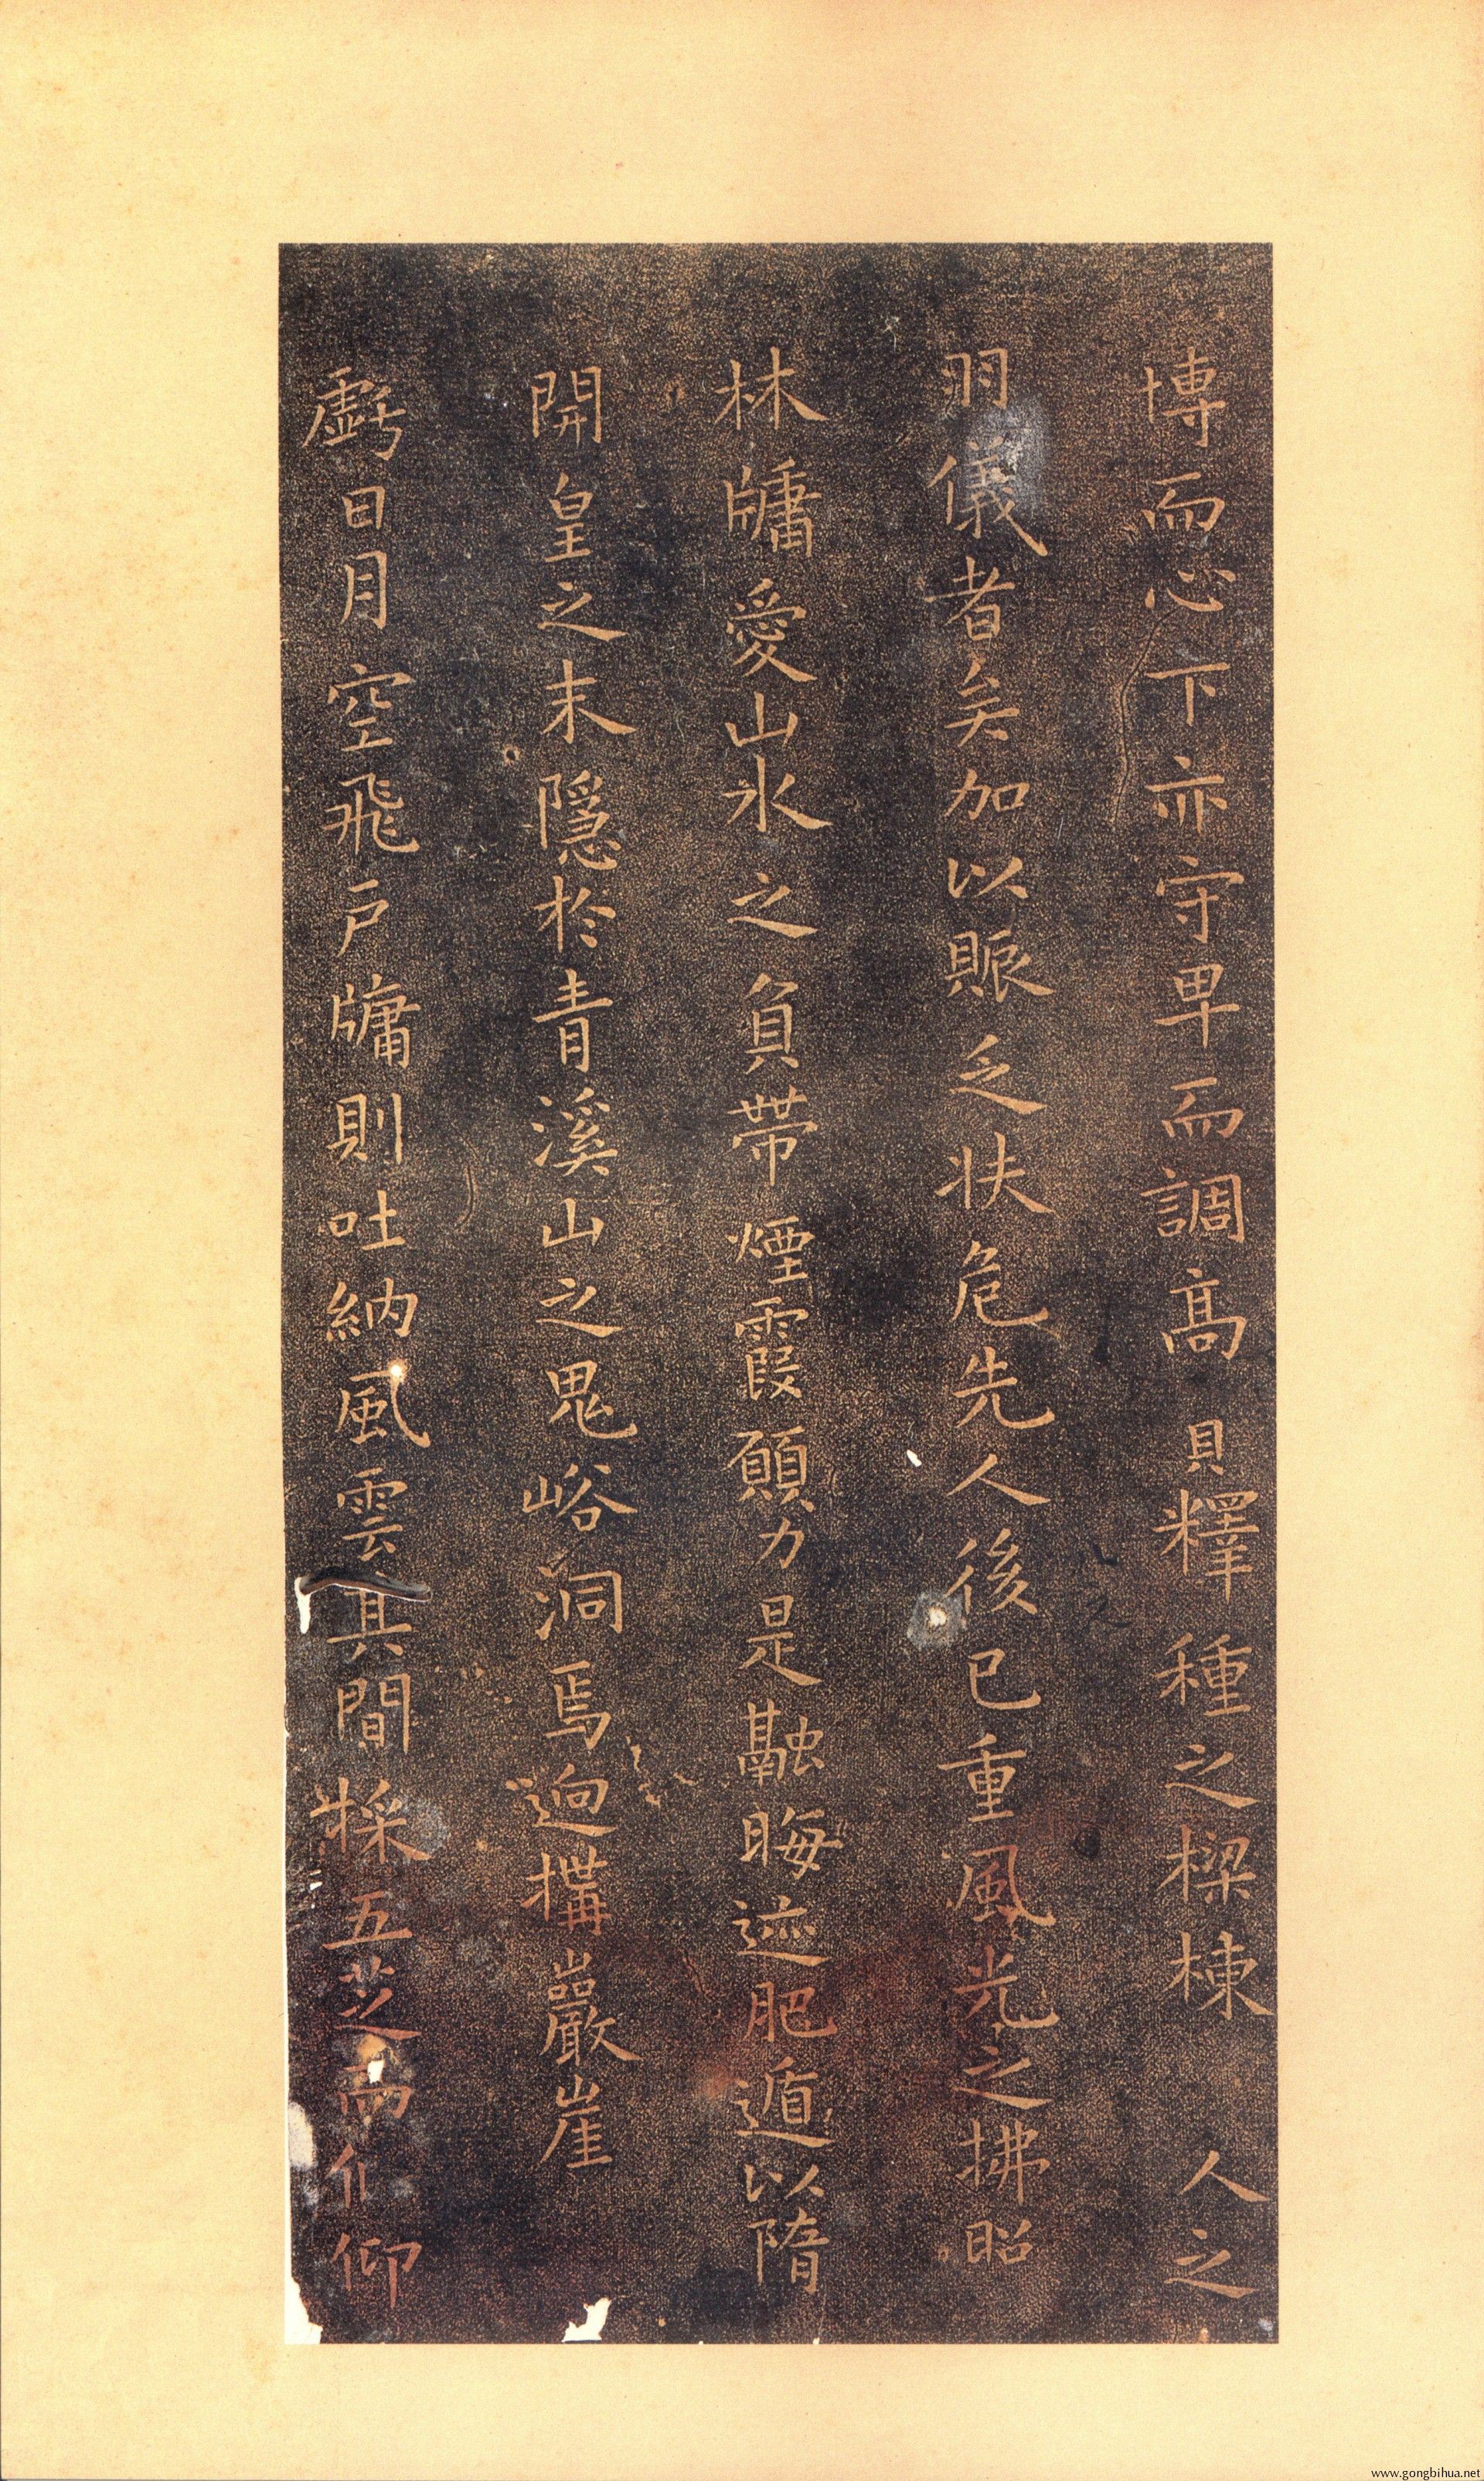 博而心下亦守卑而調高實釋種之樑棟人之
羽儀者矣加以賑乏扶危先人後已重風光之拂照
林牖愛山水之負帶煙霞願力是融晦迹肥遁以隋
開皇之末隱於青溪山之鬼峪洞焉迥構巖崖
虧日月空飛戶牖則吐納風雲其間採五芝而偃仰
www.gongbihua.net